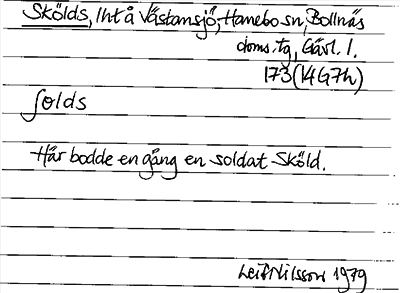 Skölds, Iht å Västansjö, Hanebo sn, Bollnäs
doms. tg, Gävl. l.
173 (14G7h)
ʃolds
Här bodde en gång en soldat Sköld.
Leif Nilsson 1979